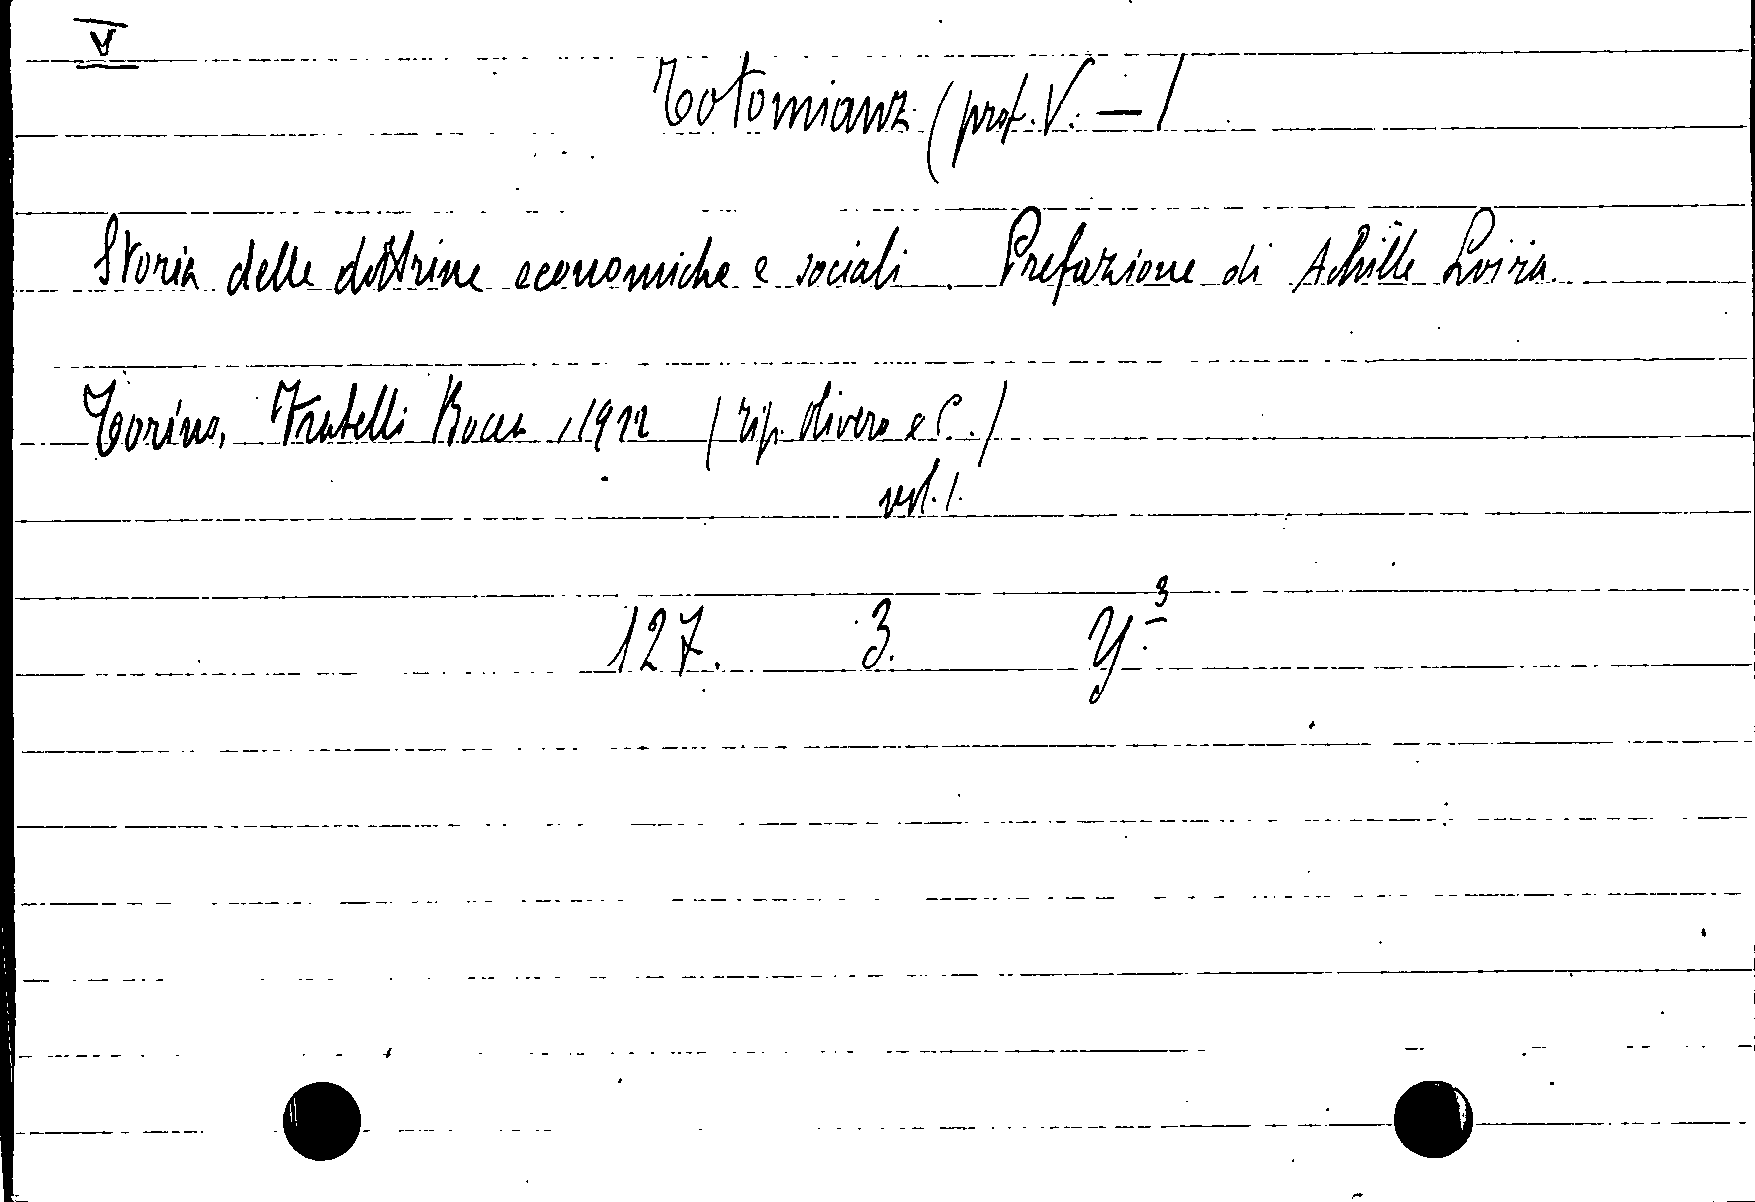 V
Totomianz (prof. V. — )
Storia delle dottrine economiche e sociali. Prefazione di Achille Loria.
Torino, Fratelli Bocca, 1922 (tip. Olivero e C.)
vol. 1.
127. 3. Y.3